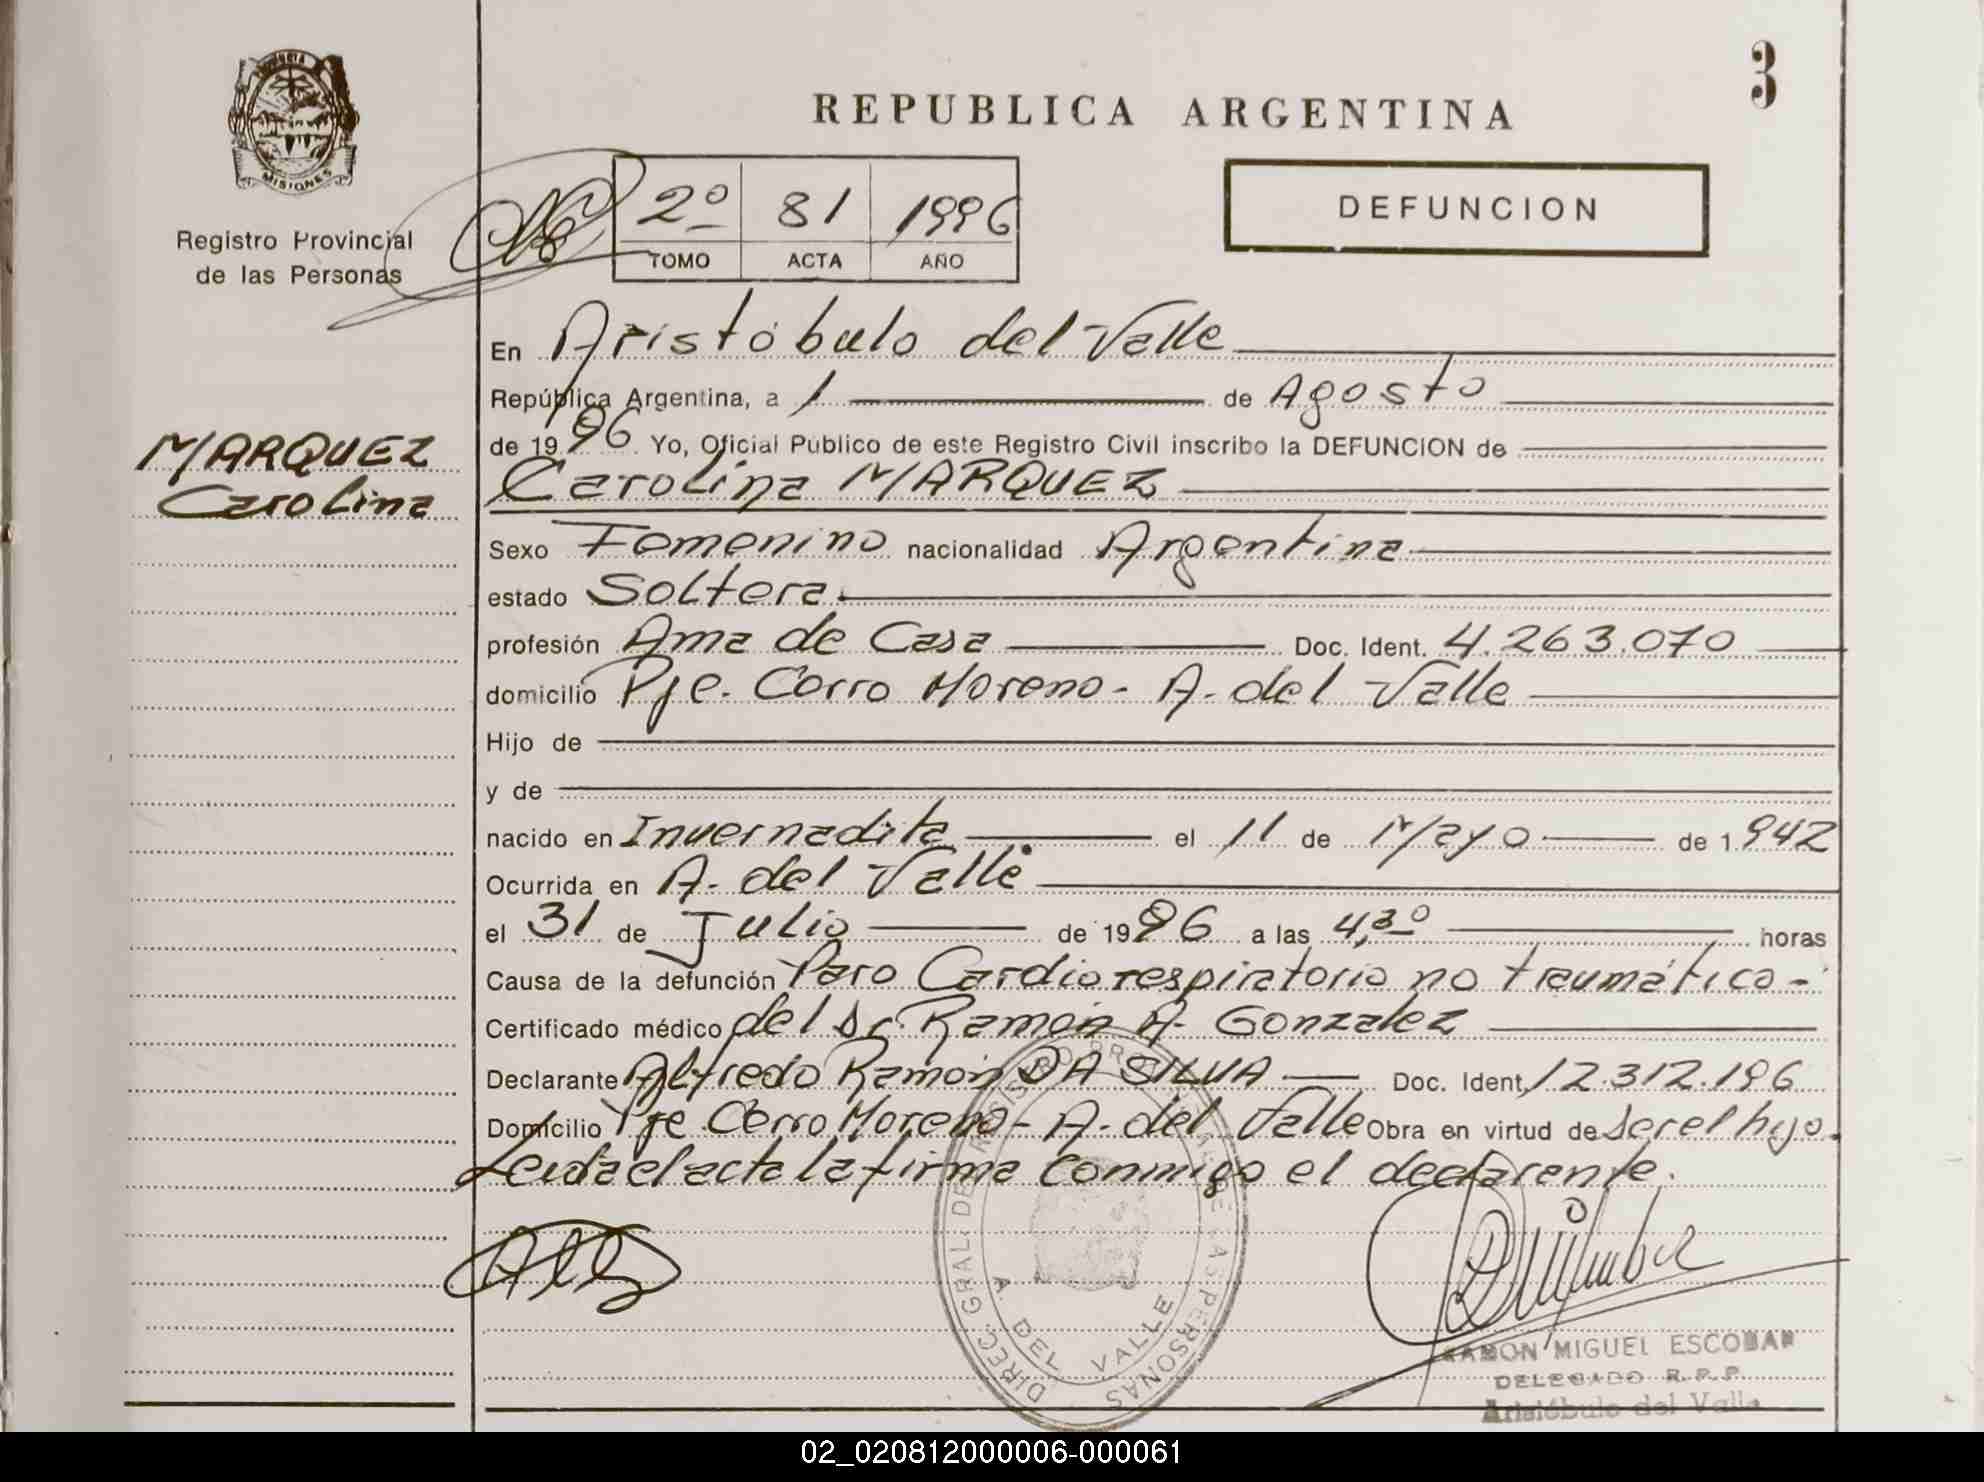 3
REPUBLICA ARGENTINA
PROVINCIA
MISIONES
Registro Provincial
de las Personas
2º 81 1996
TOMO ACTA AÑO
DEFUNCION
MARQUEZ
Carolina
En Aristóbulo del Valle
República Argentina, a 1 de Agosto
de 1996 Yo, Oficial Publico de este Registro Civil inscribo la DEFUNCION de
Carolina MARQUEZ
Sexo Femenino nacionalidad Argentina
estado Soltera.
profesión Ama de Casa Doc. Ident. 4.263.070
domicilio Pje. Cerro Moreno - A. del Valle
Hijo de
y de
nacido en Invernadita el 11 de Mayo de 1.942
Ocurrida en A. del Valle
el 31 de Julio de 1996 a las 4,30 horas
Causa de la defunción Paro Cardiorespiratorio no traumático -
Certificado médico del Dr. Ramón A. Gonzalez
Declarante Alfredo Ramón DA SILVA Doc. Ident. 12.312.196
Domicilio Pje Cerro Moreno - A. del Valle Obra en virtud de ser el hijo.
Leida el acta la firma conmigo el declarante.
DIREC. GRAL. DE REGISTRO PROVINCIAL DE LAS PERSONAS
A. DEL VALLE
RAMON MIGUEL ESCOBAR
DELEGADO R.P.P.
Aristóbulo del Valle
02_020812000006-000061